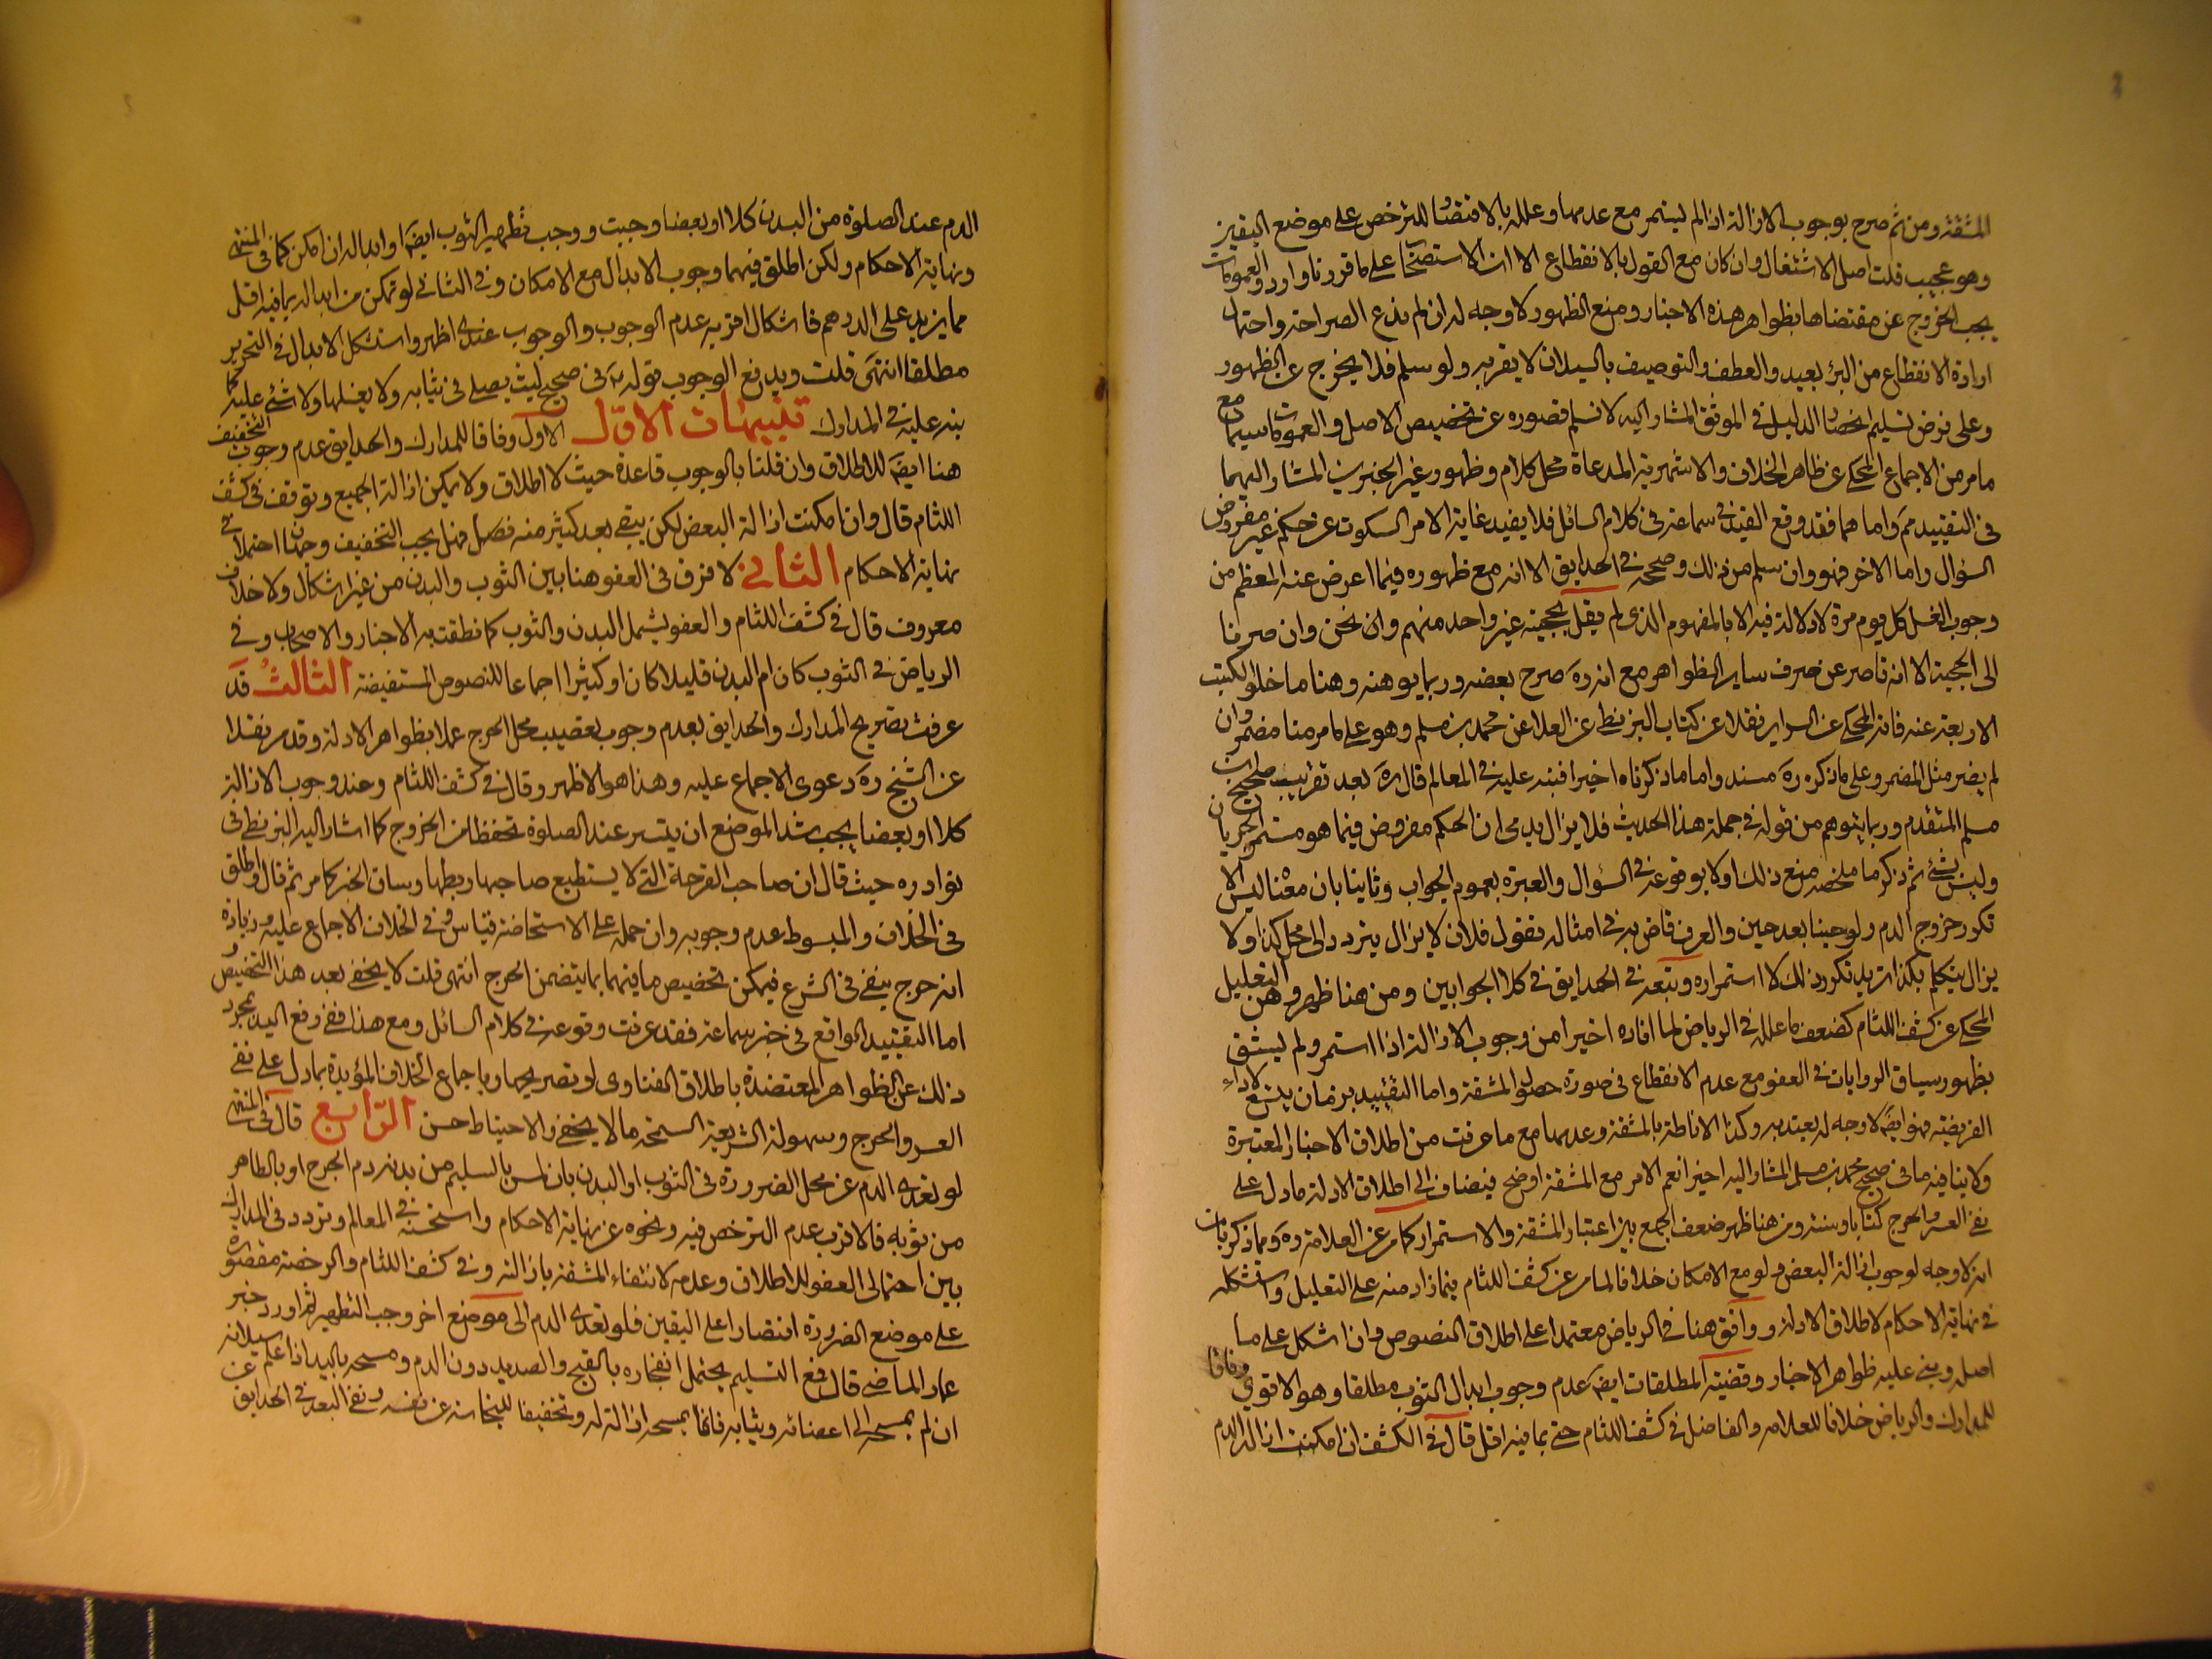 المشقة ومن ثم صرح بوجوب الازالة اذا لم يستمر مع عدمها وعلله بالاقتضاء للترخص على موضع اليقين
وهو عجيب قلت اصل الاشتغال وان كان مع القول بالانقطاع الا ان الاستصحاب على ما قررنا وارد والعمومات
يجب الخروج عن مقتضاها بظواهر هذه الاخبار ومنع الظهور لا وجه له ان لم ندع الصراحة واحتمال
ارادة الانقطاع من البرء بعيد والعطف والتوصيف بالسيلان لا يقربه ولو سلم فلا يخرج عن الظهور
وعلى فرض تسليم انحصار الدليل في الموثق المشار اليه لا نسلم قصوره عن تخصيص الاصل والعمومات سيما مع
ما مر من الاجماع المحكي عن ظاهر الخلاف والاشهرية المدعاة محل كلام وظهور غير الخبرين المشار اليهما
في التقييد مم واما هما فقد وقع القيد في سماعة في كلام السائل فلا يفيد غاية الامر السكوت عن حكم غير مفروض
السؤال واما الاخر فهو وان سلم من ذلك وصححه في الحدايق الا انه مع ظهوره فيما اعرض عنه المعظم من
وجوب الغسل كل يوم مرة لا دلالة فيه الا بالمفهوم الذي لم يقل بحجيته غير واحد منهم وان نحن وان صرنا
الى الحجية الا انه قاصر عن صرف ساير الظواهر مع انه ره صرح بعضه وربما يوهنه وهنا ما خلو الكتب
الاربعة عنه فانه المحكي عن السراير نقلا عن كتاب البزنطي عن العلا عن محمد بن مسلم وهو على ما مر منا مضمر وان
لم يضر مثل المضمر وعلى ما ذكره ره مسند واما ما ذكرناه اخيرا فنبه عليه في المعالم قال ره بعد تقريب صحيح ابن
مسلم المتقدم وربما يتوهم من قوله في جملة هذا الحديث فلا يزال يدمى ان الحكم مفروض فيما هو مستمر الجريان
وليس بشئ ثم ذكر ما ملخصه منع ذلك اولا بوقوعه في السؤال والعبرة بعموم الجواب وثانيا بان معناه ليس الا
تكرر خروج الدم ولو حينا بعد حين والعرف قاض به في امثاله نقول فلان لا يزال يتردد الى محل كذا ولا
يزال يتكلم بكذا تريد تكرر ذلك لا استمراره وتبعه في الحدايق في كلا الجوابين ومن هنا ظهر وهن التعليل
المحكي عن كشف اللثام كضعف ما علله في الرياض لما افاده اخيرا من وجوب الازالة اذا استمر ولم يشق
بظهور سياق الروايات في العفو مع عدم الانقطاع في صورة حصول المشقة واما التقييد بزمان يتسع لاداء
الفريضة فهو ايضا لا وجه له يعتد به وكذا الاناطة بالمشقة وعدمها مع ما عرفت من اطلاق الاخبار المعتبرة
ولا ينافيه ما في صحيح محمد بن مسلم المشار اليه اخيرا نعم الامر مع المشقة اوضح فيضاف الى اطلاق الادلة ما دل على
نفي العسر والحرج كتابا وسنة ومن هنا ظهر ضعف الجمع بين اعتبار المشقة والاستمرار كما مر عن العلامة ره ومما ذكر بان
انه لا وجه لوجوب ازالة البعض ولو مع الامكان خلافا لما مر عن كشف اللثام فيما زاد منه على التعليل واستشكله
في نهاية الاحكام لاطلاق الادلة ووافق هنا في الرياض معتمدا على اطلاق النصوص وان اشكل على ما
اصله وبنى عليه ظواهر الاخبار وقضية المطلقات ايضا عدم وجوب ابدال الثوب مطلقا وهو الاقوى وفاقا
للمدارك والرياض خلافا للعلامه والفاضل في كشف اللثام حتى بما فيه اقل قال في الكشف ان امكنت ازالة الدم
الدم عند الصلوة من البدن كلا او بعضا وجبت ووجب تطهير الثوب ايضا وابداله ان امكن كما في المنتهى
ونهاية الاحكام ولكن اطلق فيهما وجوب الابدال مع الامكان وفي الثاني لو تمكن من ابداله بما فيه اقل
مما يزيد على الدرهم فاشكال اقربه عدم الوجوب والوجوب عندي اظهر واستشكل الابدال في التحرير
مطلقا انتهى قلت ويدفع الوجوب قوله ع في صحيح ليث يصلي في ثيابه ولا يغسلها ولا شئ عليه كما
نبه عليه في المدارك تنبيهات الاول الاول وفاقا للمدارك والحدايق عدم وجوب التخفيف
هنا ايضا للاطلاق وان قلنا بالوجوب قاعدة حيث لا اطلاق ولا يمكن ازالة الجميع وتوقف في كشف
اللثام قال وان امكنت ازالة البعض لكن يبقى بعد كثير منه فضل فهل يجب التخفيف وجهان احتملا في
نهاية الاحكام الثاني لا فرق في العفو هنا بين الثوب والبدن من غير اشكال ولا خلاف
معروف قال في كشف اللثام والعفو يشمل البدن والثوب كما نطقت به الاخبار والاصحاب وفي
الرياض في الثوب كان ام البدن قليلا كان او كثيرا اجماعا للنصوص المستفيضة الثالث قد
عرفت تصريح المدارك والحدايق بعدم وجوب تعصيب محل الجرح عملا بظواهر الادلة وقد مر نقلا
عن الشيخ ره دعوى الاجماع عليه وهذا هو الاظهر وقال في كشف اللثام وعند وجوب الازالة
كلا او بعضا يجب شد الموضع ان يتسر عند الصلوة تحفظا من الخروج كما اشار اليه البزنطي في
نوادره حيث قال ان صاحب القرحة التي لا يستطيع صاحبها ربطها وساق الخبر كما مر ثم قال واطلق
في الخلاف والمبسوط عدم وجوبه وان حمله على الاستحاضة قياس وفي الخلاف الاجماع عليه وزيادة
انه حرج ينفي في الشرع فيمكن تخصيص ما فيهما بما يتضمن الحرج انتهى قلت لا يخفى بعد هذا التخصيص و
اما التقييد الواقع في خبر سماعة فقد عرفت وقوعه في كلام السائل ومع هذا ففي رفع اليد بمجرد
ذلك عن الظواهر المعتضدة باطلاق الفتاوى او تصريحها وباجماع الخلاف المؤيدة بما دل على نفي
العسر والحرج وسهولة الشريعة السمحه ما لا يخفى والاحتياط حسن الرابع قال في المنتهى
لو تعدى الدم عن محل الضرورة في الثوب او البدن بان لمس بالسليم من بدنه دم الجرح او بالطاهر
من ثوبه فالاقرب عدم الترخص فيه ونحوه عن نهاية الاحكام واستحسنه في المعالم وتردد في المدارك
بين احتمالي العفو للاطلاق وعدمه لانتفاء المشقة بازالته وفي كشف اللثام والرخصة مقصورة
على موضع الضرورة اقتصارا على اليقين فلو تعدى الدم الى موضع اخر وجب التطهير ثم اورد خبر
عمار الماضي قال فمع التسليم يحتمل انفجاره بالقيح والصديد دون الدم ومسحه باليد اذا علم سيلانه
ان لم يمسحه الى اعضائه وثيابه فانما يمسحه ازالة له وتخفيفا للنجاسة عن نفسه ونفى البعد في الحدايق عن